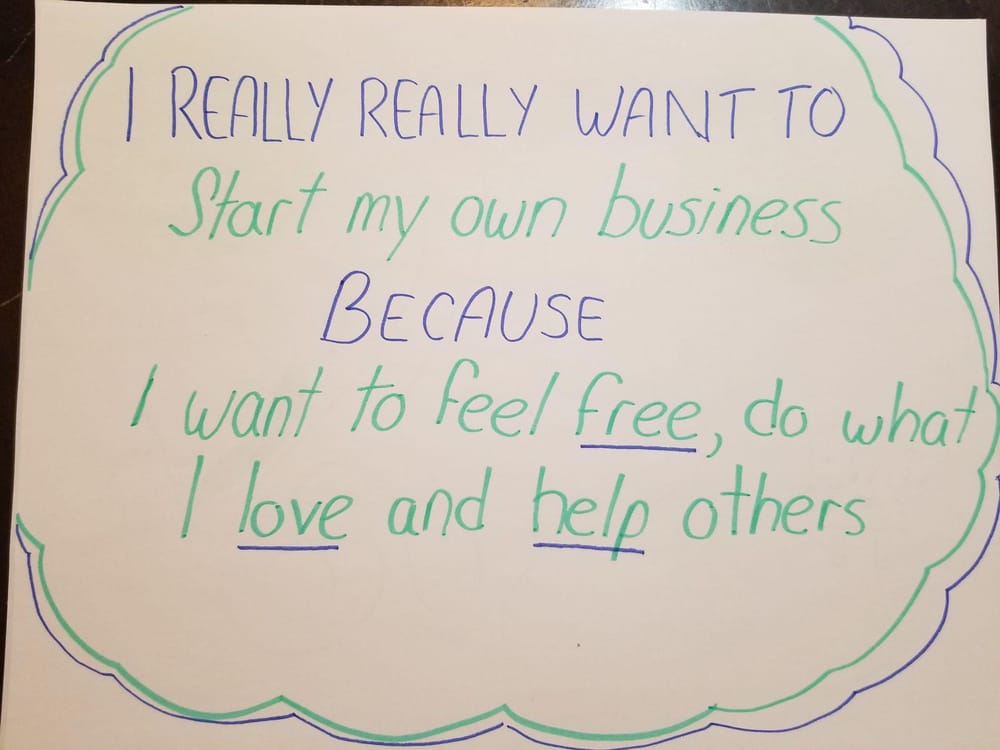 I REALLY REALLY WANT TO
Start my own business
BECAUSE
I want to feel free, do what
I love and help others